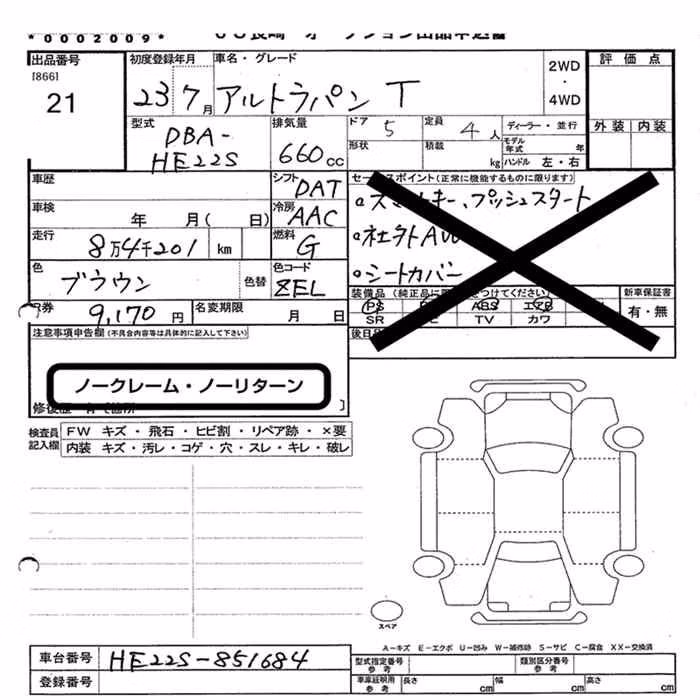 *0002009*
出品番号
[866]
21
初度登録年月
23 7月
車名・グレード
アルトラパン T
2WD
・
4WD
評価点
外装 内装
型式
DBA-
HE22S
排気量
660cc
ドア 5
定員 4人
ディーラー・並行
形状
積載 kg
モデル年式 年
ハンドル 左・右
車歴
シフト DAT
セールスポイント(正常に機能するものに限ります)
プッシュスタート
車検 年 月( 日)
冷房 AAC
。社外AW
走行 8万4千201 km
燃料 G
。シートカバー
色 ブラウン 色替
色コード ZEL
装備品(純正品に限
つけてください)
新車保証書
有・無
PS
ABS エアB
SR
TV カワ
券 9,170円
名変期限 月 日
後日
注意事項申告欄(不具合内容等は具体的に記入して下さい)
ノークレーム・ノーリターン
検査員記入欄
FW キズ・飛石・ヒビ割・リペア跡・×要
内装 キズ・汚レ・コゲ・穴・スレ・キレ・破レ
スペア
A-キズ E-エクボ U-凹み W-補修跡 S-サビ C-腐食 XX-交換済
車台番号 HE22S-851684
登録番号
型式指定番号 参考
類別区分番号 参考
車庫証明用 参考
長さ cm 幅 cm 高さ cm